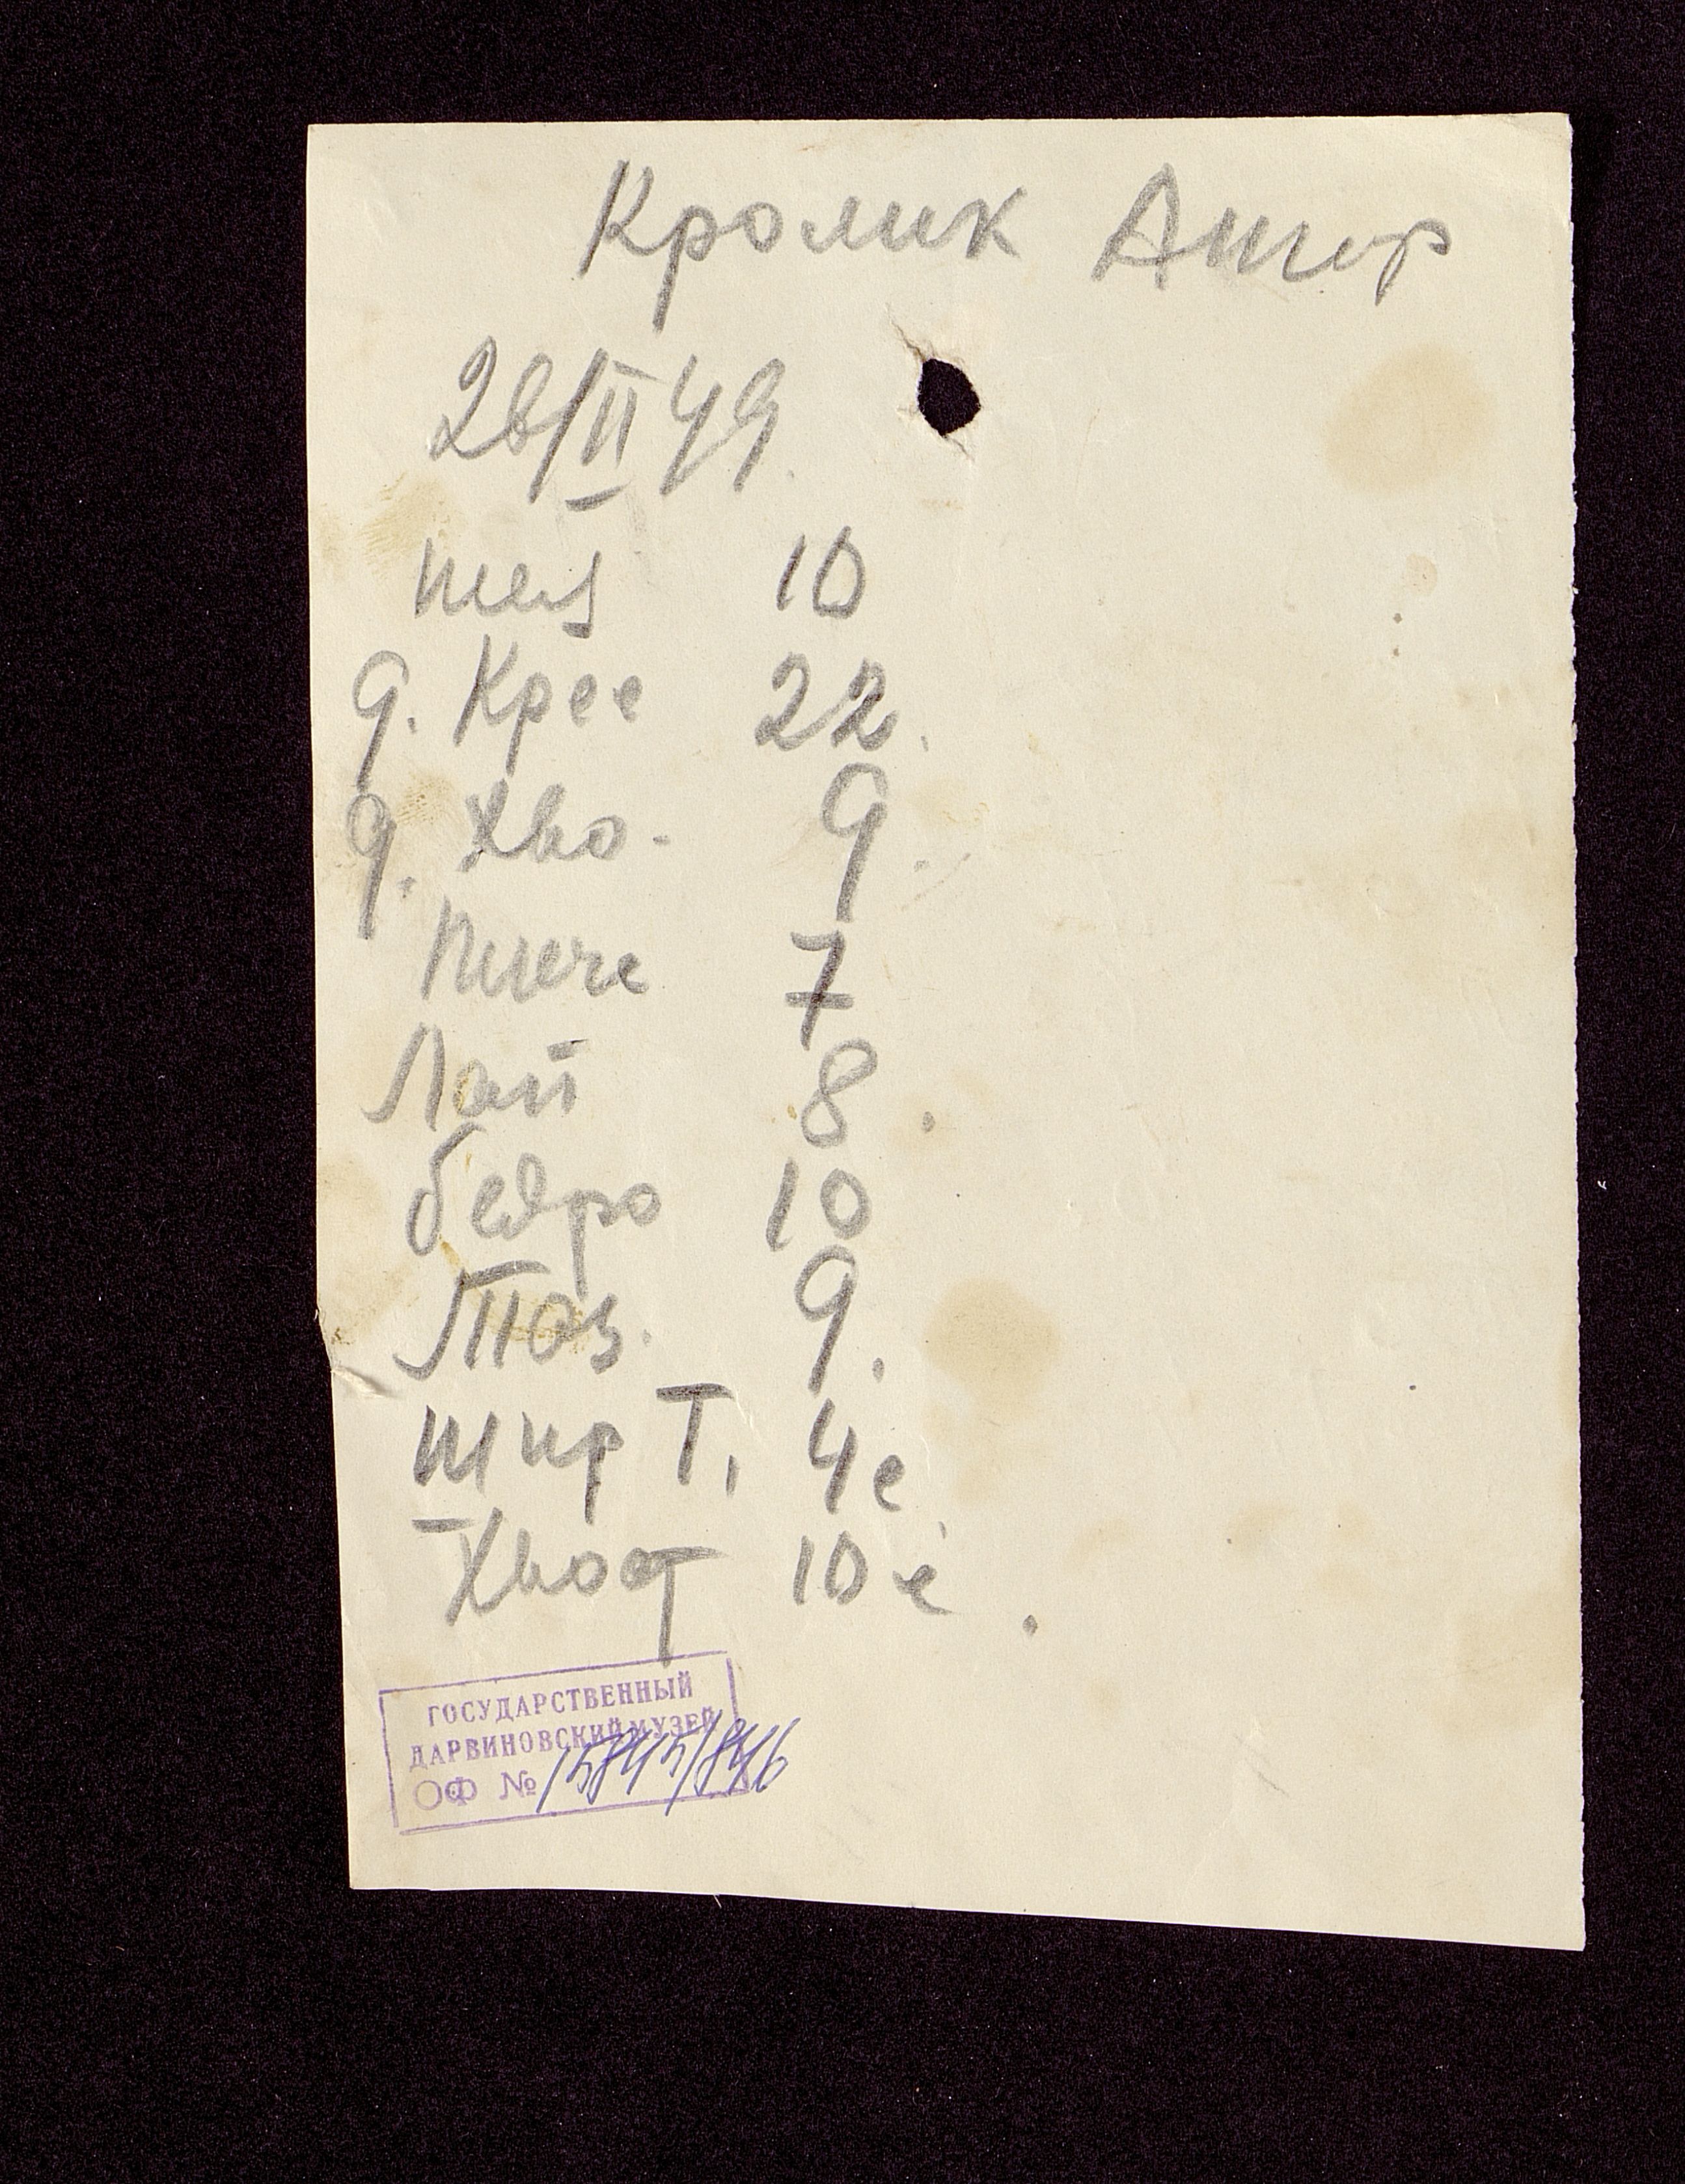 Кролик Ангор
28/II 49.
шея 10
д. Крее 22.
д. Хво. 9.
плече 7
Лап 8.
бедро 10
Таз. 9.
шир Т. 4 с
Хвост 10 с.
ГОСУДАРСТВЕННЫЙ
ДАРВИНОВСКИЙ МУЗЕЙ
ОФ № 15845/846